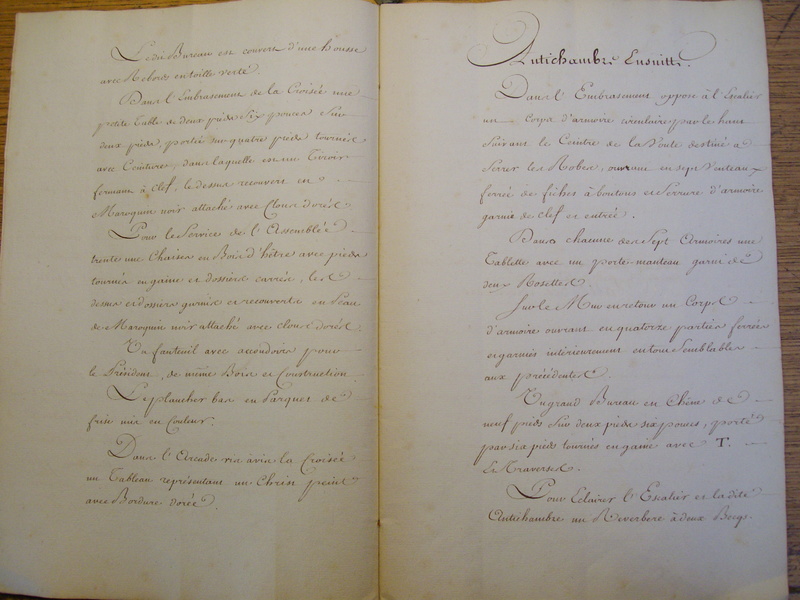 Ledit Bureau est couvert d'une housse
avec Rebors en toille verte.
Dans l'Embrasement de la Croisée une
petite Table de deux pieds Six pouces Sur
deux pieds, portée sur quatre pieds tournés
avec Ceinture, dans laquelle est un Tiroir
fermant à clef, le dessus recouvert en
Maroquin noir attaché avec Clous dorés.
Pour le Service de l'Assemblée
trente une Chaises en Bois d'hêtre avec pieds
tournés en gaine et dossiers carrés, les
dessus et dossiers garnis et recouverts en Peau
de Maroquin noir attaché avec clous dorés.
Un fauteuil avec accoudoirs pour
le Président, de même Bois et Construction
Le plancher bas en Parquet de
frise mis en Couleur.
Dans l'Arcade vis avis la Croisée
un Tableau représentant un Christ peint
avec Bordure dorée.
Antichambre Ensuitte.
Dans l'Embrasement opposé à l'Escalier
un Corps d'armoire circulaire par le haut
Suivant le Ceintre de la Voute destiné a
Serrer les Robes, ouvrant en sept Venteaux
ferrée de fiches à boutons et Serrure d'armoire
garnie de clef et entrée.
Dans chacune des Sept Armoires une
Tablette avec un porte-manteau garni de
deux Rosettes.
Sur le Mur en retour un Corps
d'armoire ouvrant en quatorze parties ferrées
et garnies intérieurement en tout Semblables
aux précédentes.
Un grand Bureau en Chêne de
neuf pieds Sur deux pieds six pouces, porté
par six pieds tournés en gaine avec T.
et Traverses.
Pour Eclairer l'Escalier et la dite
Antichambre un Reverbere à deux Becgs.